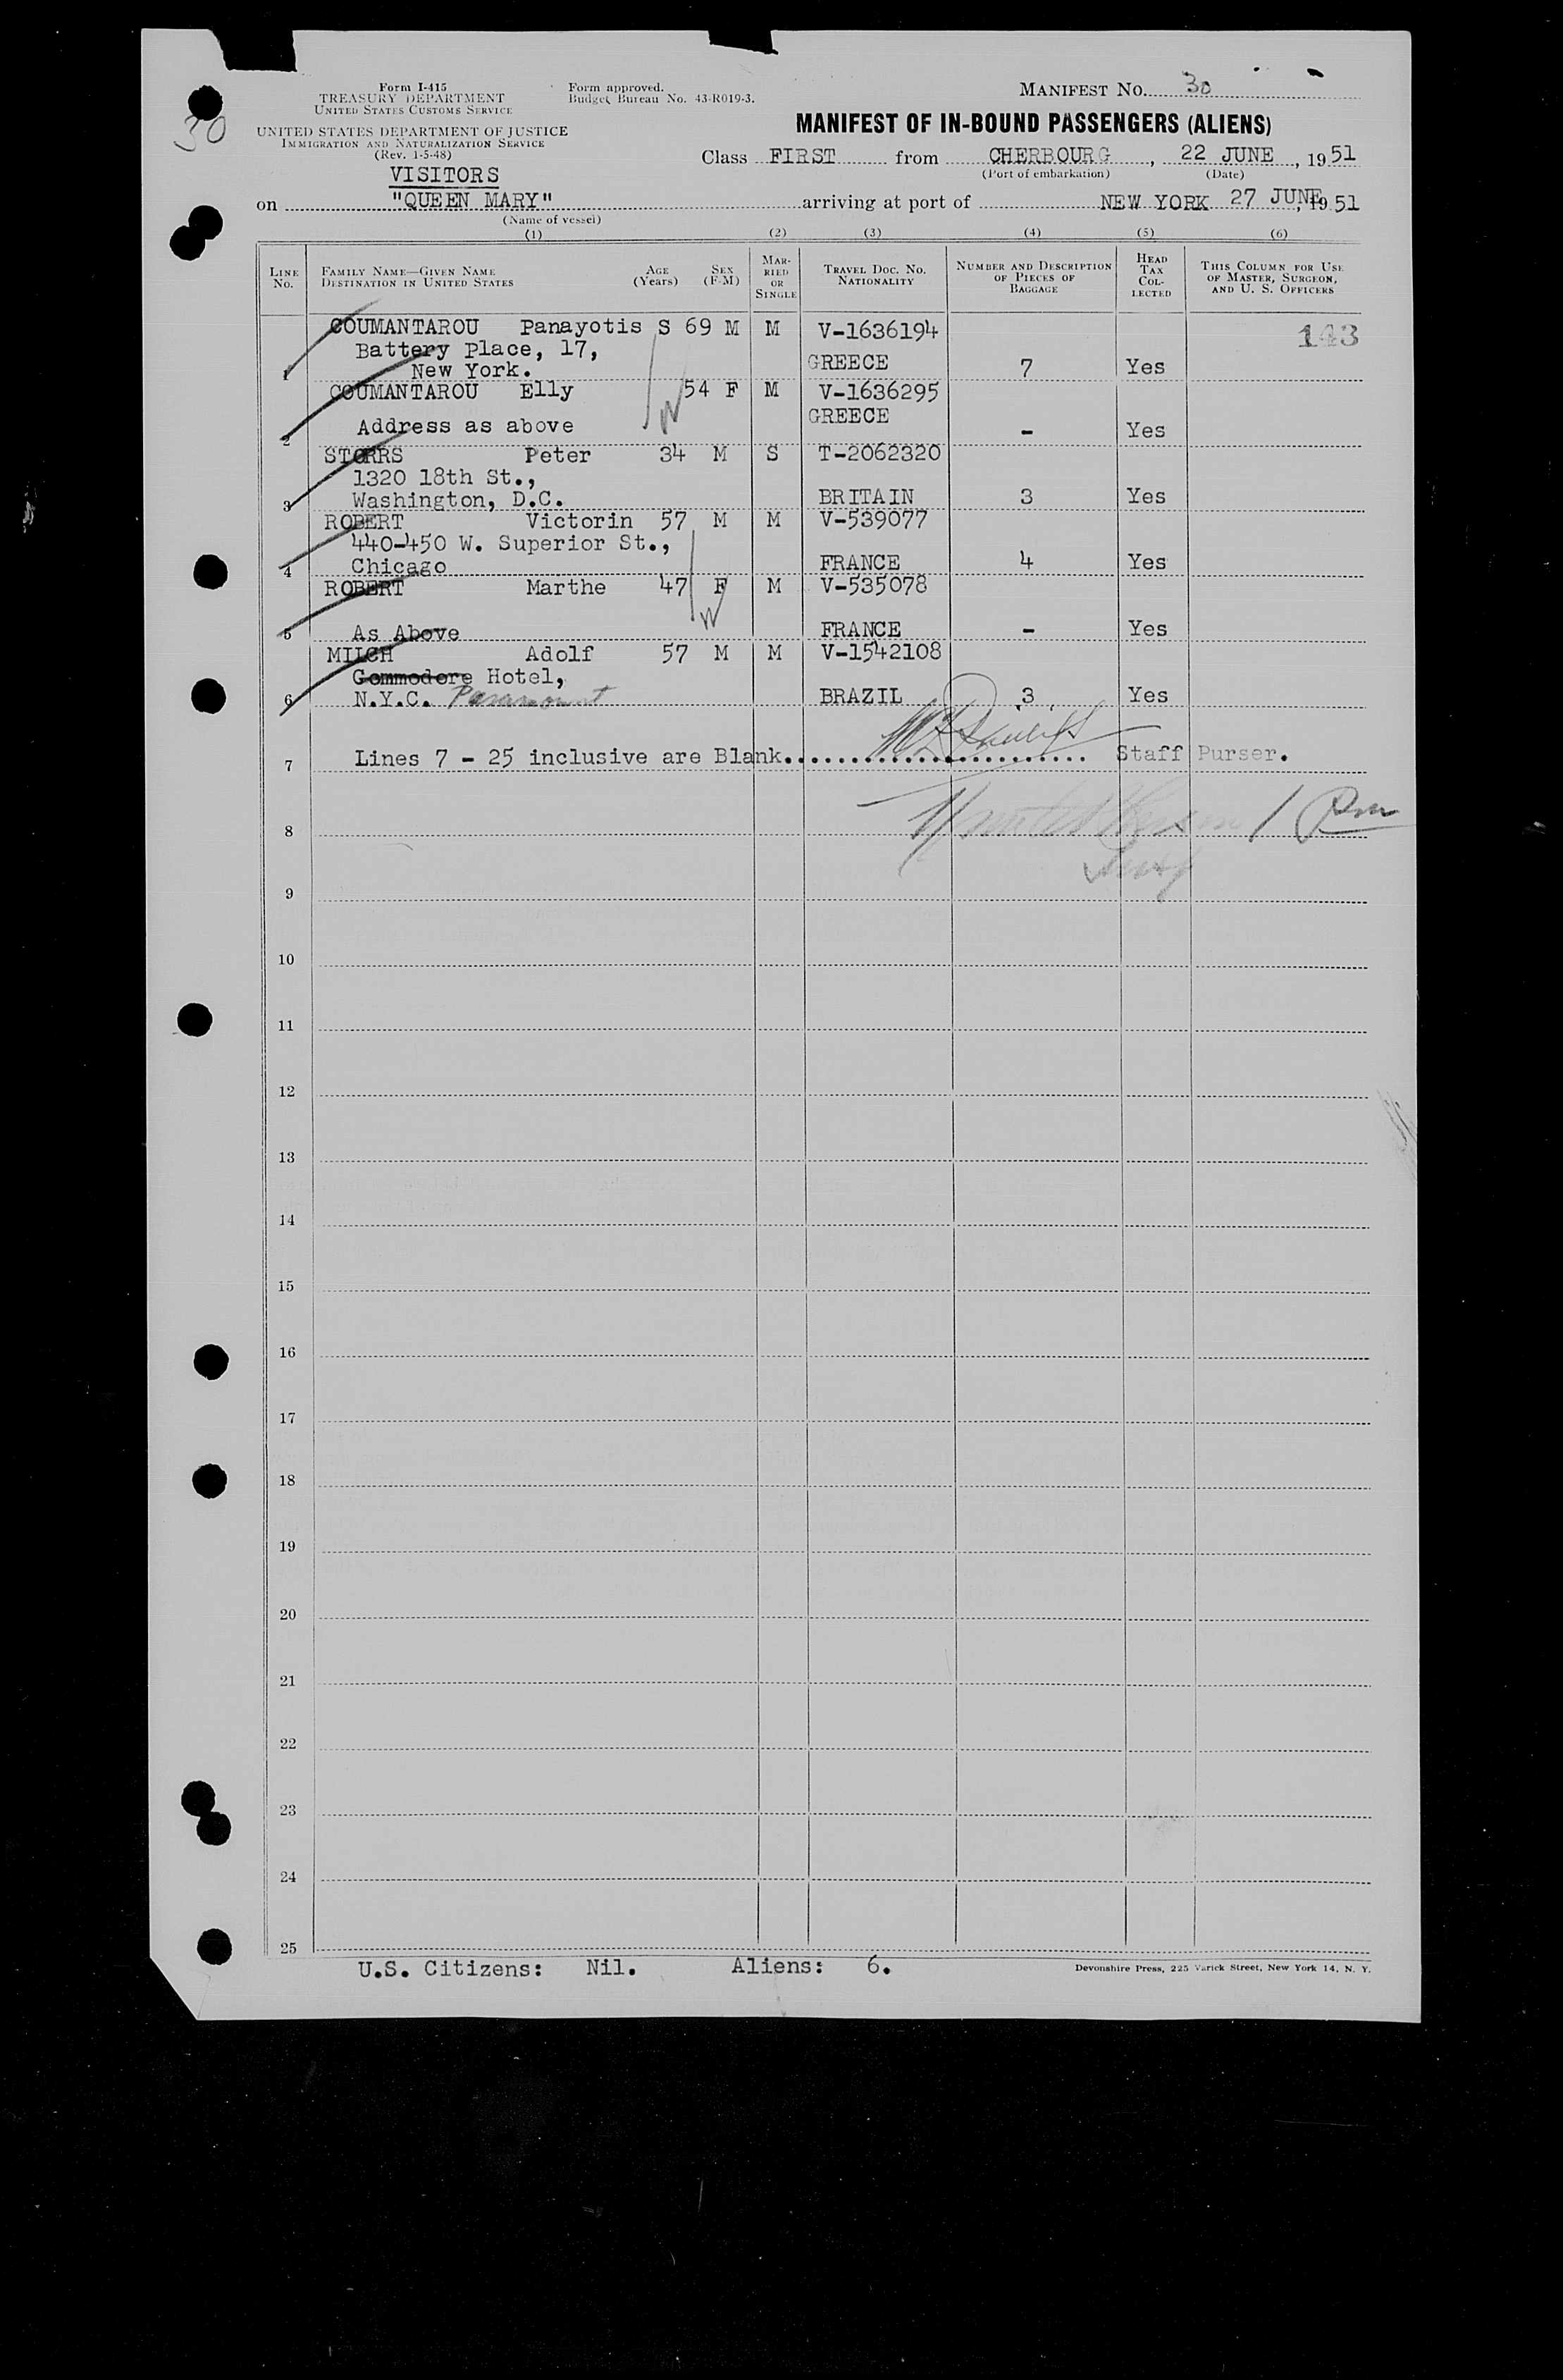 Form I-415
TREASURY DEPARTMENT
UNITED STATES CUSTOMS SERVICE
Form approved.
Budget Bureau No. 43-R019-3.
MANIFEST NO. 30
30
UNITED STATES DEPARTMENT OF JUSTICE
IMMIGRATION AND NATURALIZATION SERVICE
(Rev. 1-5-48)
MANIFEST OF IN-BOUND PASSENGERS (ALIENS)
Class FIRST from CHERBOURG, 22 JUNE, 1951
(Port of embarkation) (Date)
VISITORS
on "QUEEN MARY" arriving at port of NEW YORK 27 JUNE, 1951
(Name of vessel)
(1) (2) (3) (4) (5) (6)
LINE NO. FAMILY NAME—GIVEN NAME DESTINATION IN UNITED STATES AGE (Years) SEX (F-M) MARRIED OR SINGLE TRAVEL DOC. NO. NATIONALITY NUMBER AND DESCRIPTION OF PIECES OF BAGGAGE HEAD TAX COLLECTED THIS COLUMN FOR USE OF MASTER, SURGEON, AND U. S. OFFICERS
COUMANTAROU Panayotis S 69 M M V-1636194 143
Battery Place, 17,
1 New York. GREECE 7 Yes
COUMANTAROU Elly 54 F M V-1636295
GREECE
2 Address as above - Yes
STORRS Peter 34 M S T-2062320
1320 18th St.,
3 Washington, D.C. BRITAIN 3 Yes
ROBERT Victorin 57 M M V-539077
440-450 W. Superior St.,
4 Chicago FRANCE 4 Yes
ROBERT Marthe 47 F M V-535078
5 As Above FRANCE - Yes
MILCH Adolf 57 M M V-1542108
Commodore Hotel,
6 N.Y.C. Paramount BRAZIL 3 Yes
7 Lines 7 - 25 inclusive are Blank............................ Staff Purser.
8
9
10
11
12
13
14
15
16
17
18
19
20
21
22
23
24
25
U.S. Citizens: Nil. Aliens: 6.
Devonshire Press, 225 Varick Street, New York 14, N. Y.